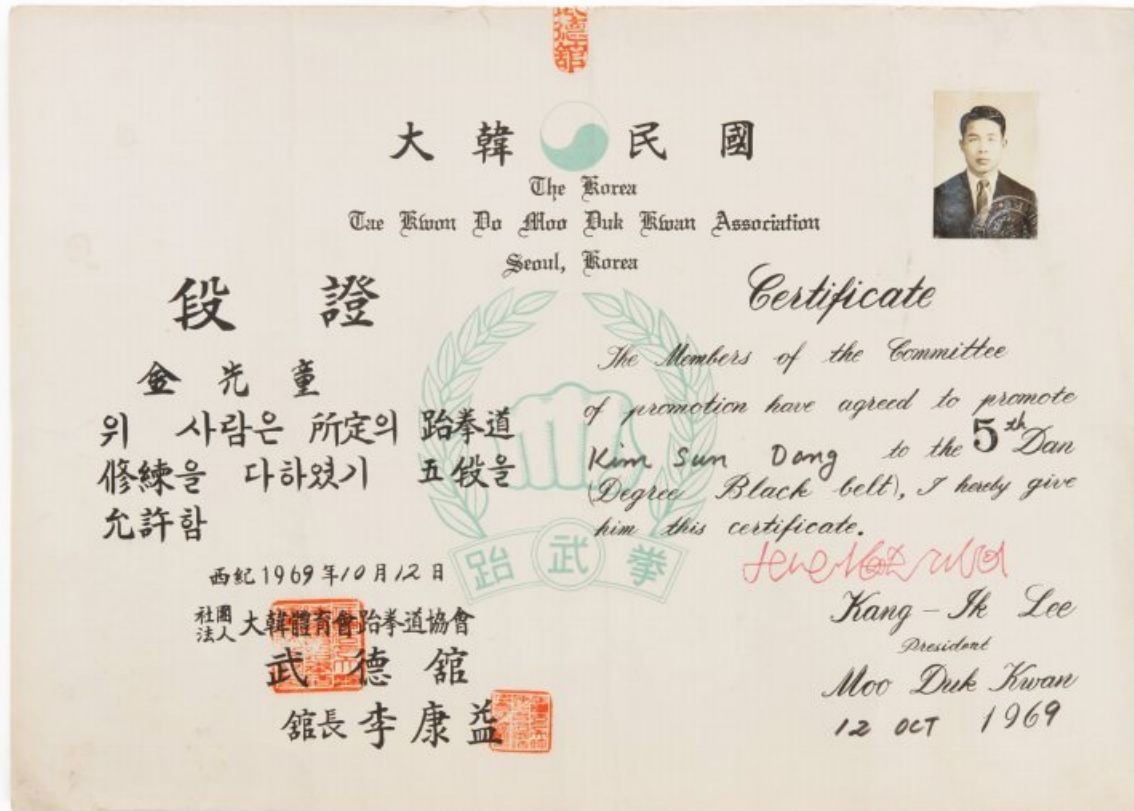 武德館
大韓民國
The Korea
Tae Kwon Do Moo Duk Kwan Association
Seoul, Korea
段證
金先童
위 사람은 所定의 跆拳道
修練을 다하였기 五段을
允許함
西紀1969年10月12日
社團法人 大韓體育會跆拳道協會
武德舘
舘長 李康益
Certificate
The Members of the Committee
of promotion have agreed to promote
Kim Sun Dong to the 5th Dan
(Degree Black belt), I hereby give
him this certificate.
Kang-Ik Lee
President
Moo Duk Kwan
12 OCT 1969
跆武拳